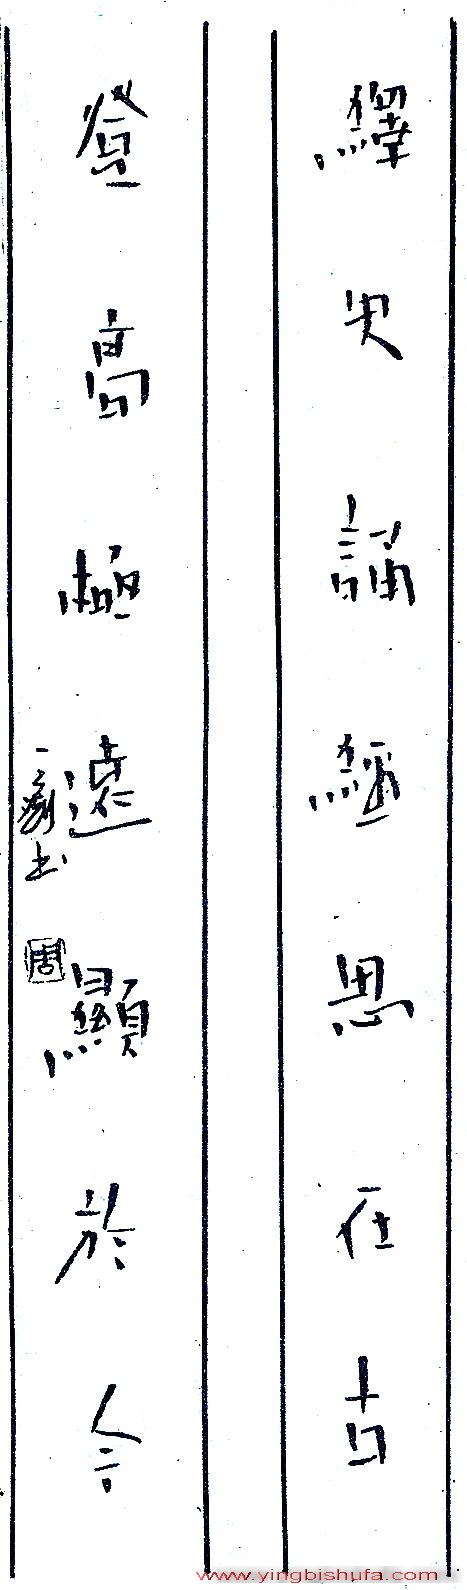 繹史誦經思在古
登高極遠顯於今
一勺書
周
www.yingbishufa.com